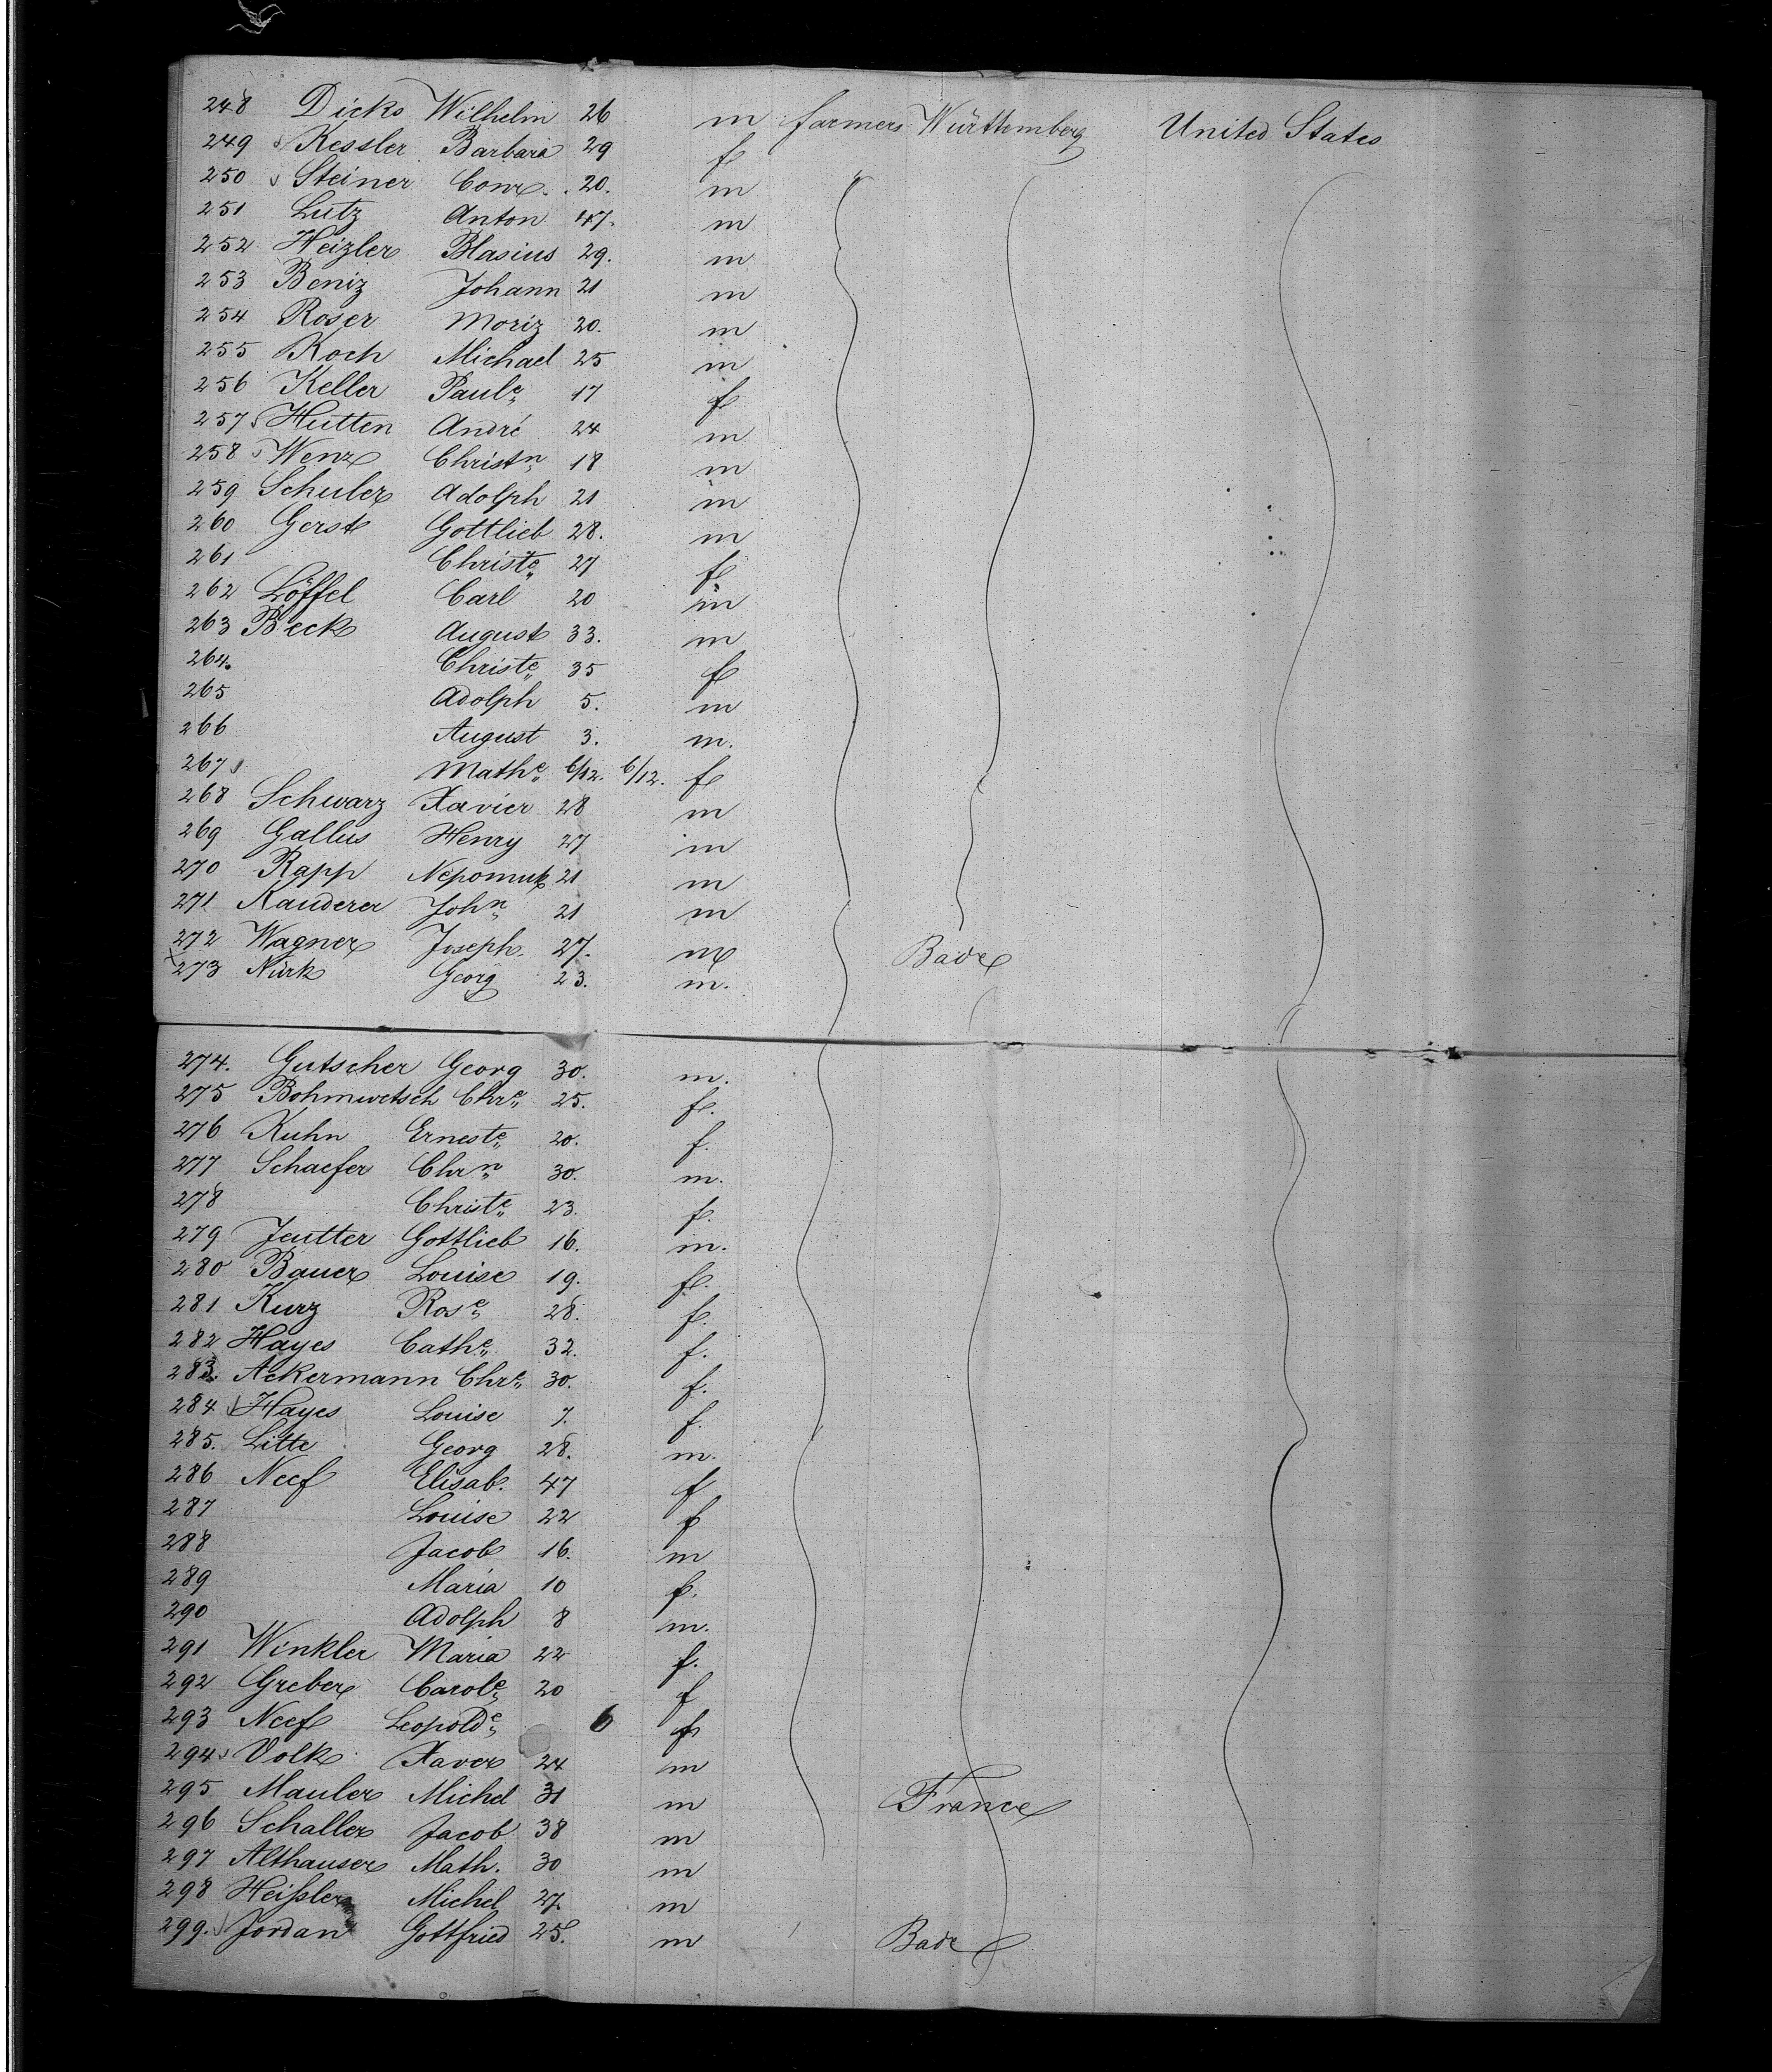 248 Dicks Wilhelm 26 m farmers Württemberg United States
249 Kessler Barbara 29 f
250 Steiner Conr. 20. m
251 Lutz Anton 47. m
252 Heizler Blasius 29. m
253 Beniz Johann 21 m
254 Roser Moriz 20. m
255 Koch Michael 25 m
256 Keller Paule 17 f
257 Hutten André 24 m
258 Wenz Christn 18 m
259 Schuler Adolph 21 m
260 Gerst Gottlieb 28. m
261 Christe 27 f
262 Löffel Carl 20 m
263 Beck August 33. m
264. Christe 35 f
265 Adolph 5. m
266 August 3. m.
267 Mathe 6/12. 6/12. f
268 Schwarz Xavier 28 m
269 Gallus Henry 27 m
270 Rapp Nepomuk 21 m
271 Kauderer John 21 m
272 Wagner Joseph. 27. m Bade
273 Nürk Georg 23. m.
274. Gutscher Georg 30. m.
275 Bohmwetsch Chre 25. f.
276 Kuhn Erneste 20. f.
277 Schaefer Chrn 30. m.
278 Christe 23. f.
279 Jeutter Gottlieb 16. m.
280 Bauer Louise 19. f.
281 Kurz Rose 28. f.
282 Hayes Cathe 32. f.
283. Ackermann Chre 30. f.
284 Hayes Louise 7. f.
285. Litte Georg 28. m.
286 Neef Elisab. 47 f
287 Louise 22 f
288 Jacob 16. m
289 Maria 10 f.
290 Adolph 8 m.
291 Winkler Maria 22 f.
292 Greber Carole 20 f
293 Neef Leopolde 6 f
294 Volk Xaver 24 m
295 Mauler Michel 31 m France
296 Schaller Jacob 38 m
297 Althauser Math. 30 m
298 Heißler Michel 27. m
299. Jordan Gottfried 25. m Bade